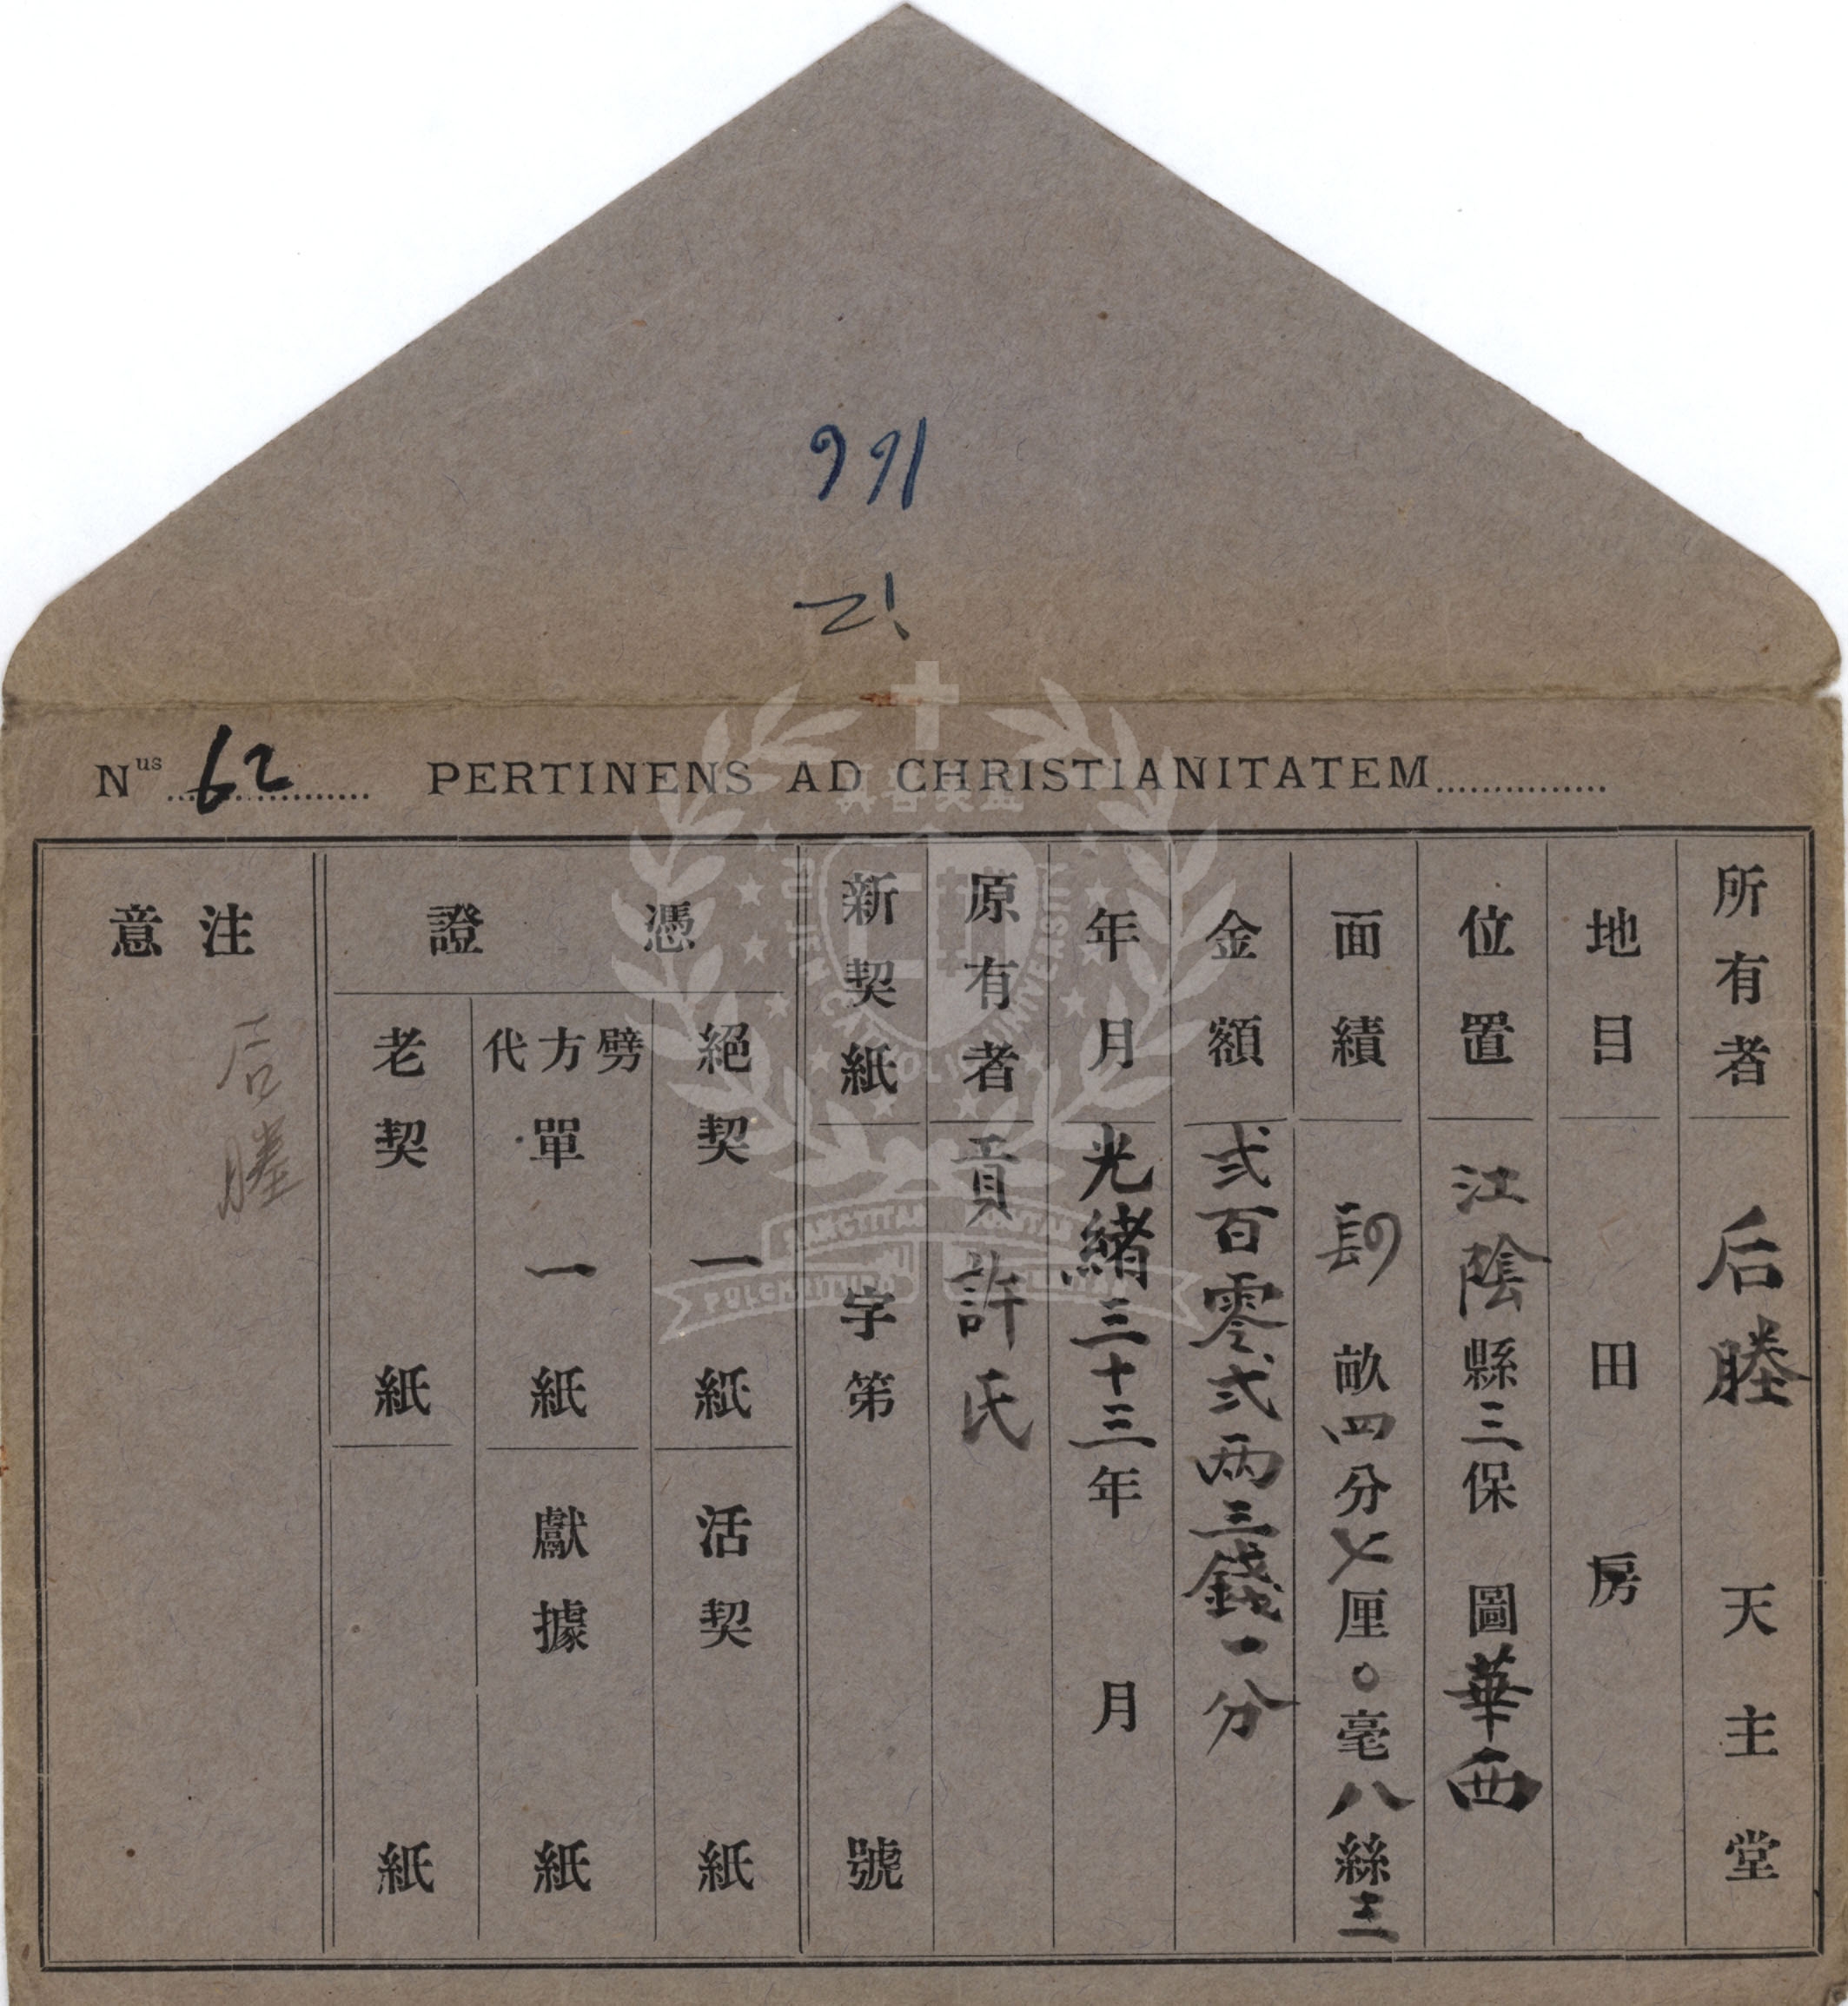 166
21
Nus 62 PERTINENS AD CHRISTIANITATEM
所有者 后塍 天主堂
地目 田 房
位置 江陰縣三保 圖華西
面績 畝四分七厘〇毫八絲三
金額 弍百零弍兩三錢一分
年月 光緒三十三年 月
原有者 貢許氏
新契紙 字第 號
憑證
絕契 一紙
活契 紙
劈方代單 一紙
獻據 紙
老契 紙
紙
注意
后塍